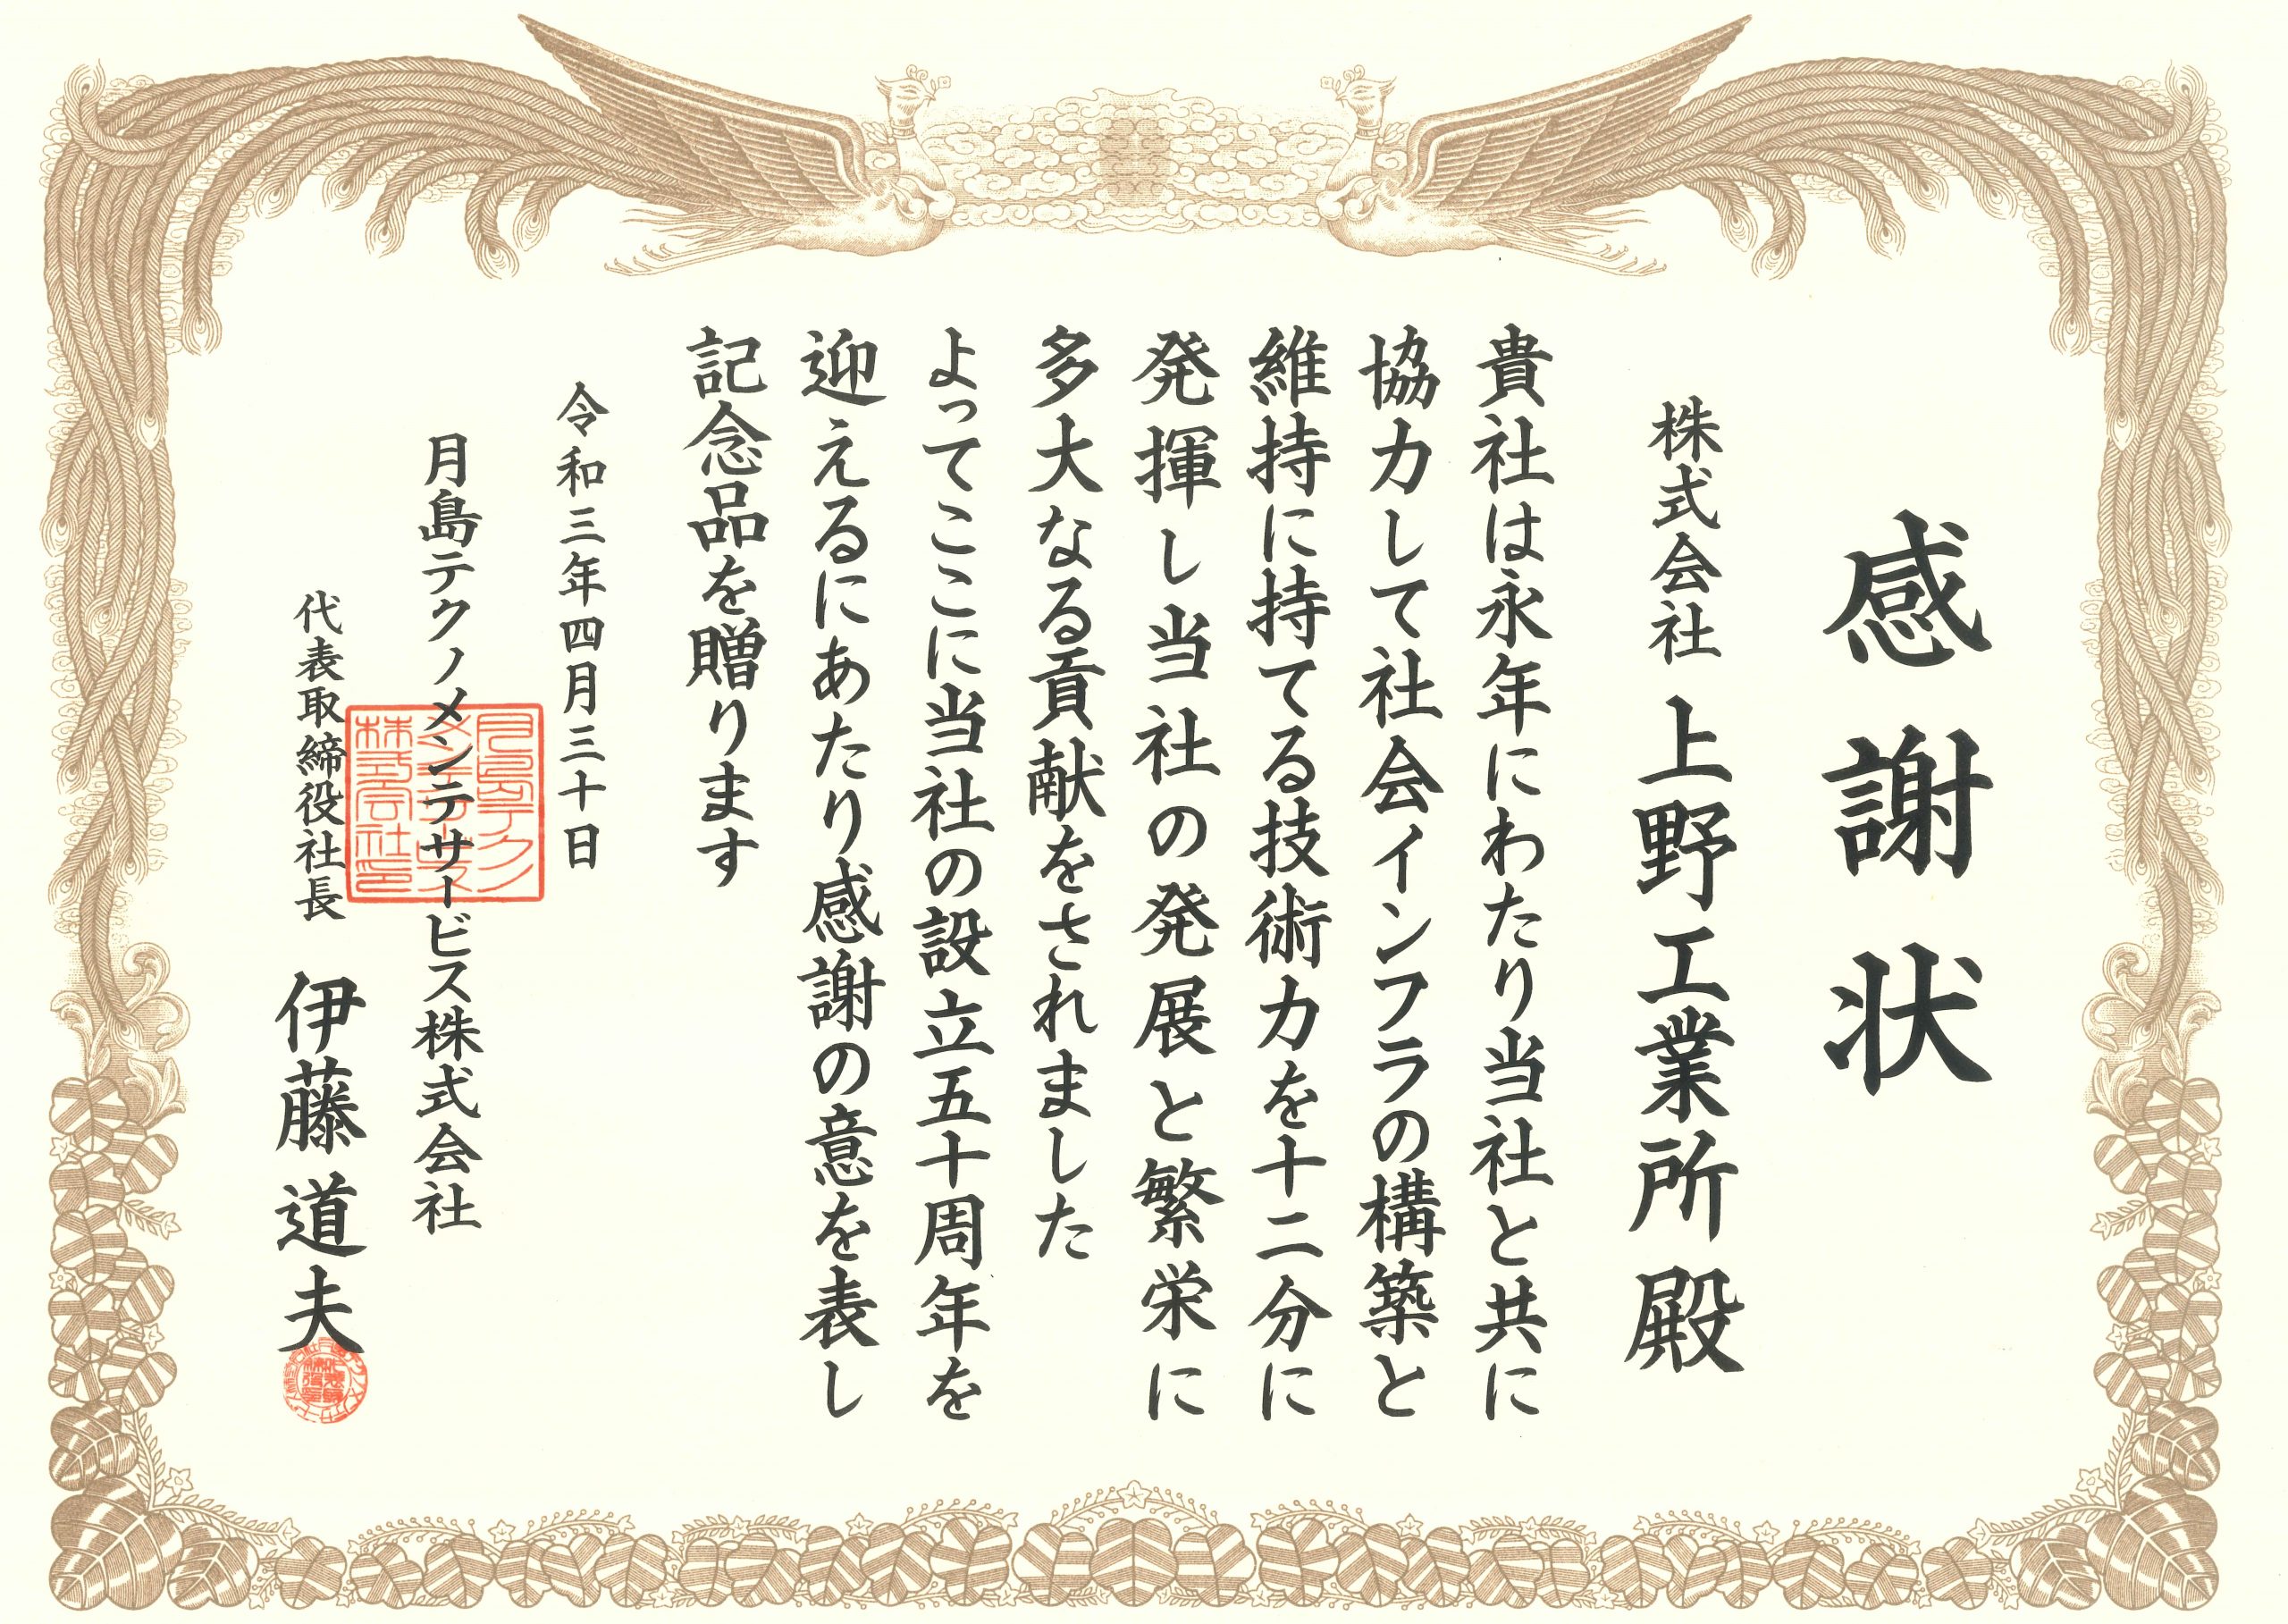 感謝状
株式会社 上野工業所 殿
貴社は永年にわたり当社と共に
協力して社会インフラの構築と
維持に持てる技術力を十二分に
発揮し当社の発展と繁栄に
多大なる貢献をされました
よってここに当社の設立五十周年を
迎えるにあたり感謝の意を表し
記念品を贈ります
令和三年四月三十日
月島テクノメンテサービス株式会社
代表取締役社長 伊藤道夫
月島テクノ
メンテサービス
株式会社印